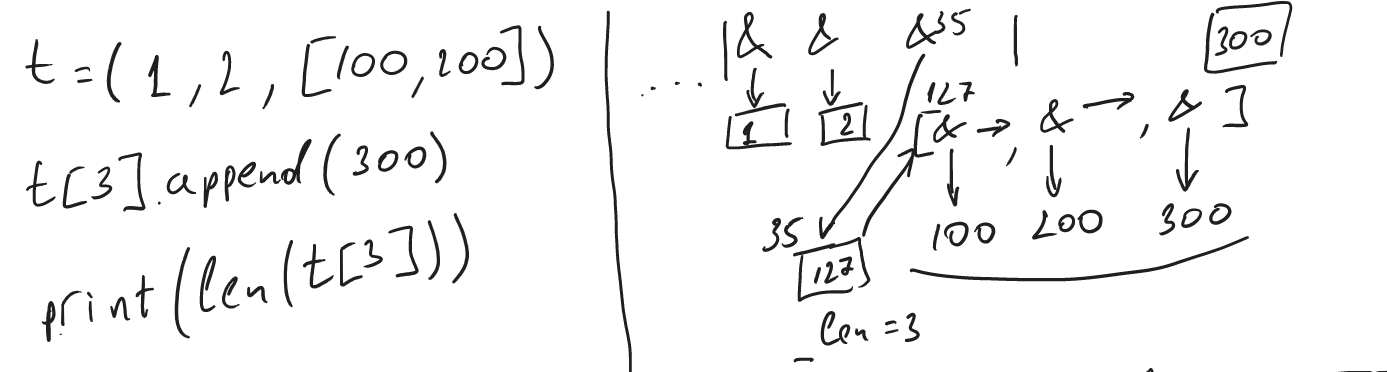 t=(1,2,[100,200])
t[3].append(300)
print(len(t[3]))
....|& & &35 |
300
1 2
127
[& → , & → , & ]
100 200 300
35
127
len =3